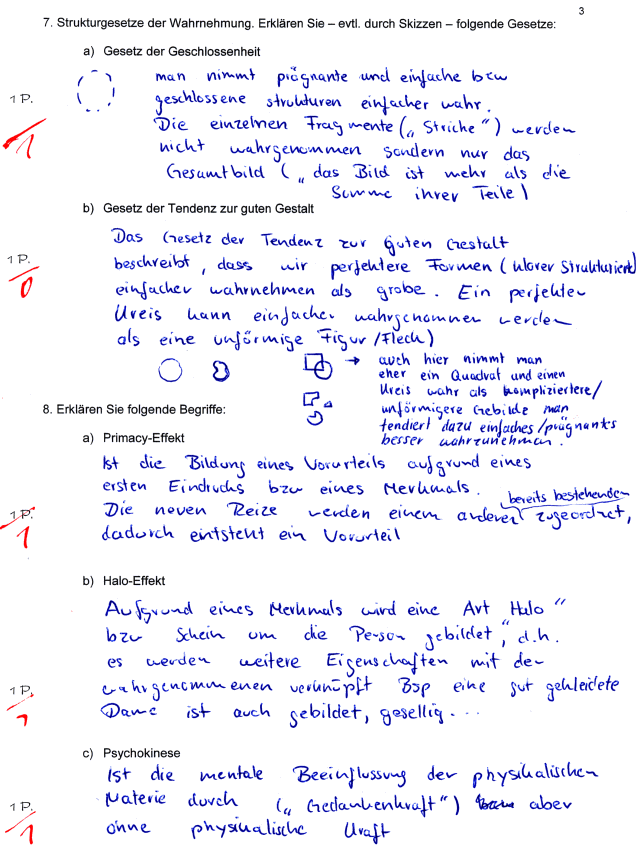 3
7. Strukturgesetze der Wahrnehmung. Erklären Sie – evtl. durch Skizzen – folgende Gesetze:
a) Gesetz der Geschlossenheit
man nimmt prägnante und einfache bzw
geschlossene strukturen einfacher wahr.
1 P.
1
Die einzelnen Fragmente („Striche“) werden
nicht wahrgenommen sondern nur das
Gesamtbild („das Bild ist mehr als die
Summe ihrer Teile)
b) Gesetz der Tendenz zur guten Gestalt
Das Gesetz der Tendenz zur guten Gestalt
1 P.
0
beschreibt, dass wir perfektere Formen (klarer Strukturiert)
einfacher wahrnehmen als grobe. Ein perfekter
Kreis kann einfacher wahrgenommen werden
als eine unförmige Figur/Fleck)
→ auch hier nimmt man
eher ein Quadrat und einen
Kreis wahr als kompliziertere/
unförmigere Gebilde man
tendiert dazu einfaches/prägnants
besser wahrzunehmen.
8. Erklären Sie folgende Begriffe:
a) Primacy-Effekt
Ist die Bildung eines Vorurteils aufgrund eines
ersten Eindrucks bzw eines Merkmals.
1 P.
1
Die neuen Reize werden einem anderen bereits bestehenden zugeordnet,
dadurch entsteht ein Vorurteil
b) Halo-Effekt
Aufgrund eines Merkmals wird eine Art Halo“
bzw Schein um die Person gebildet“, d.h.
es werden weitere Eigenschaften mit der
1 P.
1
wahrgenommenen verknüpft Bsp eine gut gekleidete
Dame ist auch gebildet, gesellig....
c) Psychokinese
Ist die mentale Beeinflussung der physikalischen
1 P.
1
Materie durch („Gedankenkraft“) aber
ohne physikalische Kraft